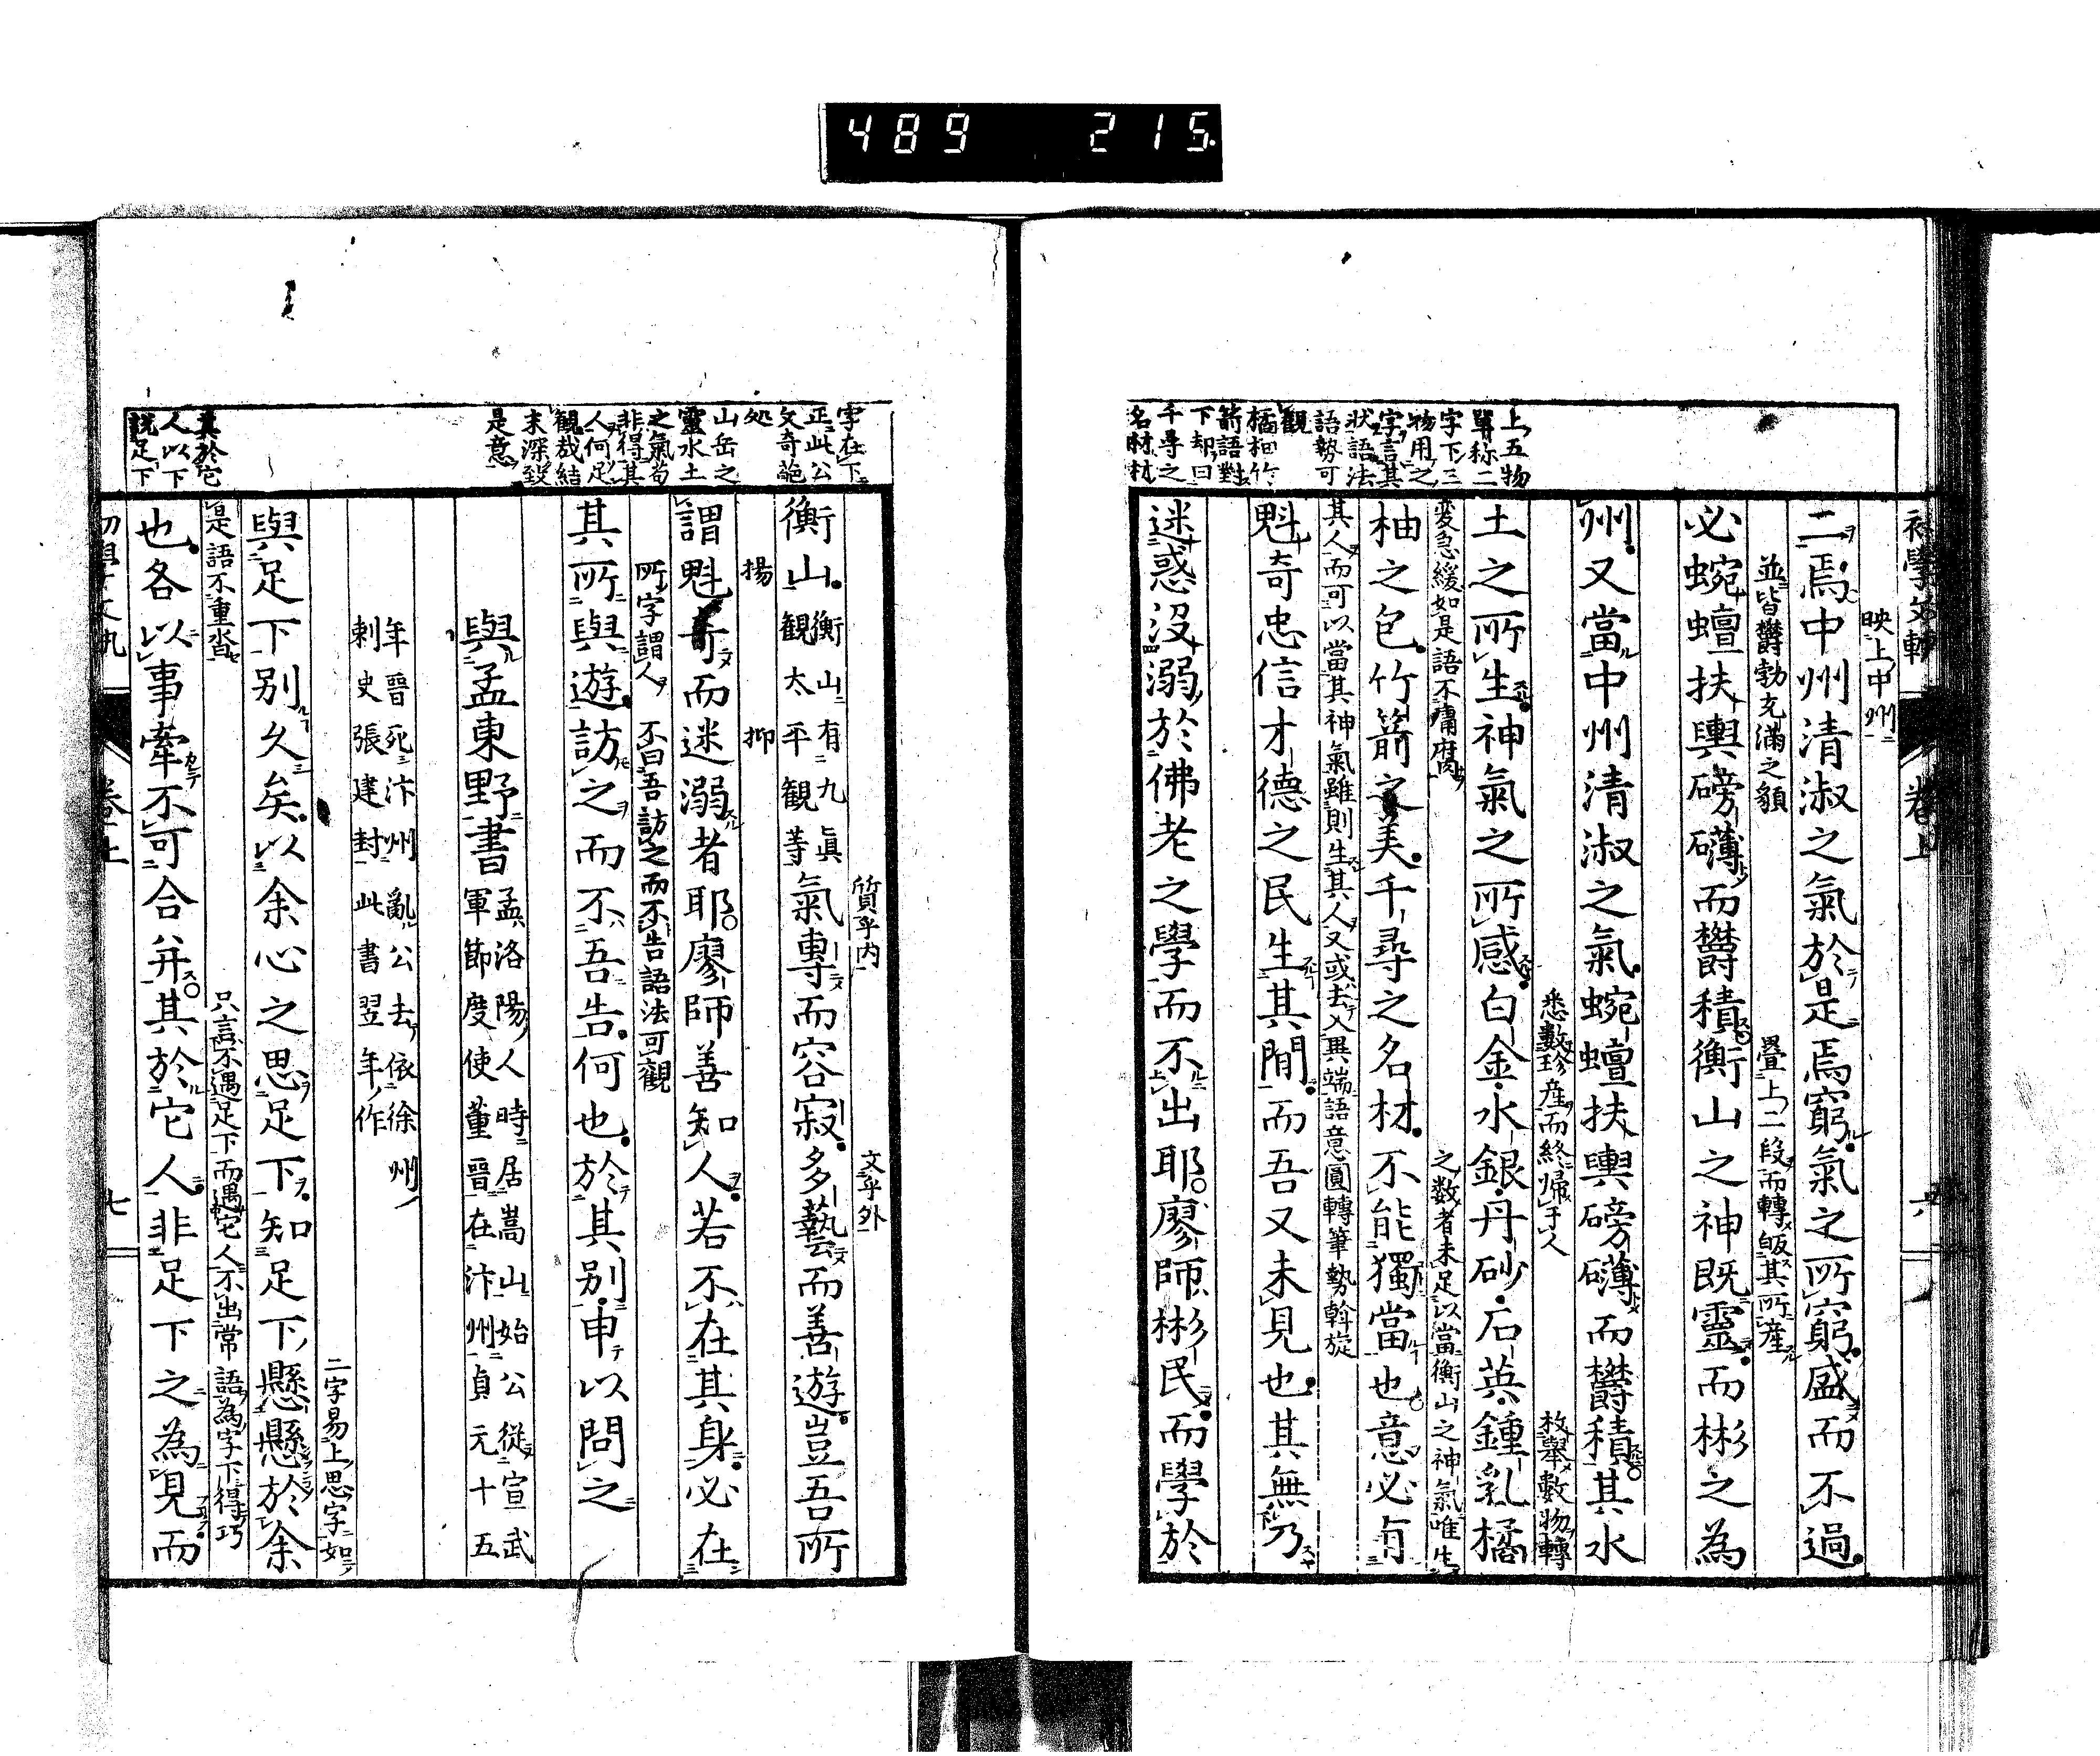 489 215
初學文軌 卷上 六
映上中州
二焉中州清淑之氣於是焉窮氣之所窮盛而不過
並皆欝勃充滿之貌
疊上二段而轉皈其所產
必蜿蟺扶輿磅礴而欝積衡山之神既靈而郴之為
州又當中州清淑之氣蜿蟺扶輿磅礴而欝積其水
悉數珍產而終歸于人
枚舉數物轉
土之所生神氣之所感白金水銀丹砂石英鍾乳橘
変急緩如是語不庸腐
之數者未足以當衡山之神氣唯生
柚之包竹箭之美千尋之名材不能獨當也意必有
其人而可以當其神氣雖則生其人又或去入異端語意圓轉筆勢斡旋
魁奇忠信才德之民生其間而吾又未見也其無乃
迷惑沒溺於佛老之學而不出耶廖師郴民而學於
上五物
單称二
字下三
物用之
字言其
狀語法
語勢可
觀
橘柚竹
箭語對
下却曰
千尋之
名材材
字在下
正此公
文奇葩
処
山岳之
靈水土
之氣苟
非得其
人何足
観哉結
末深致
是意
質乎内
文乎外
衡山衡山有九眞
観太平観等氣專而容寂多藝而善遊豈吾所
揚 抑
謂魁奇而迷溺者耶廖師善知人若不在其身必在
所字謂人 不曰吾訪之而不告語法可觀
其所與遊訪之而不吾告何也於其別申以問之
與孟東野書孟洛陽人時居嵩山始公從宣武
軍節度使董晉在汴州貞元十五
年晉死汴州亂公去依徐州
刺史張建封此書翌年作
二字易上思字如
與足下別久矣以余心之思足下知足下懸懸於余
是語不重沓
只言不遇足下而遇它人不出常語為字下得巧
也各以事牽不可合并其於它人非足下之為見而
其於它
人以下
説足下
初學文軌 卷上 七